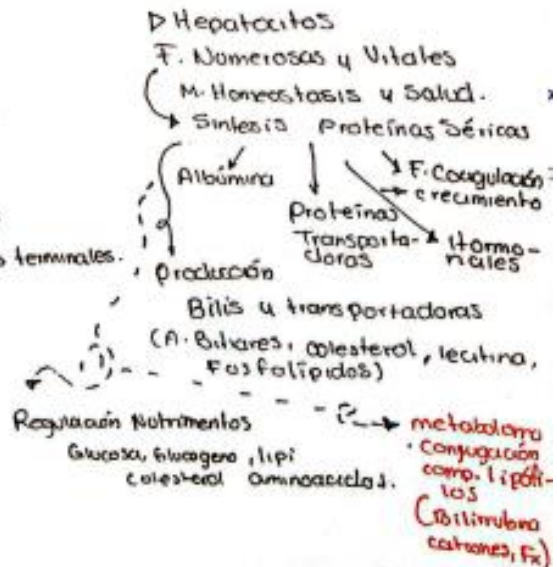 ▷ Hepatocitos
F. Numerosas y Vitales
M. Homeostasis y Salud.
Síntesis Proteínas Séricas
Albúmina
F. Coagulación
crecimiento
Proteínas
Transporta-
doras
Hormo-
nales
terminales.
Producción
Bilis y transportadoras
(A. Biliares, colesterol, lecitina,
Fosfolípidos)
Regulación Nutrimentos
Glucosa, Glucogeno, lipi
colesterol aminoacidos.
metabolismo
· conjugación
comp. lipófi-
los
(Bilirrubina
cationes, Fx)